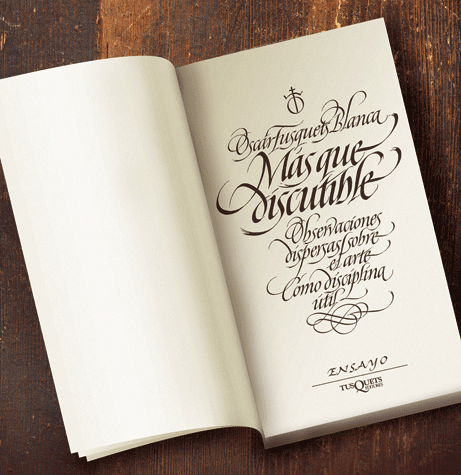 Oscar Tusquets Blanca
Más que
discutible
Observaciones
dispersas sobre
el arte
como disciplina
útil
ENSAYO
TUSQUETS
EDITORES